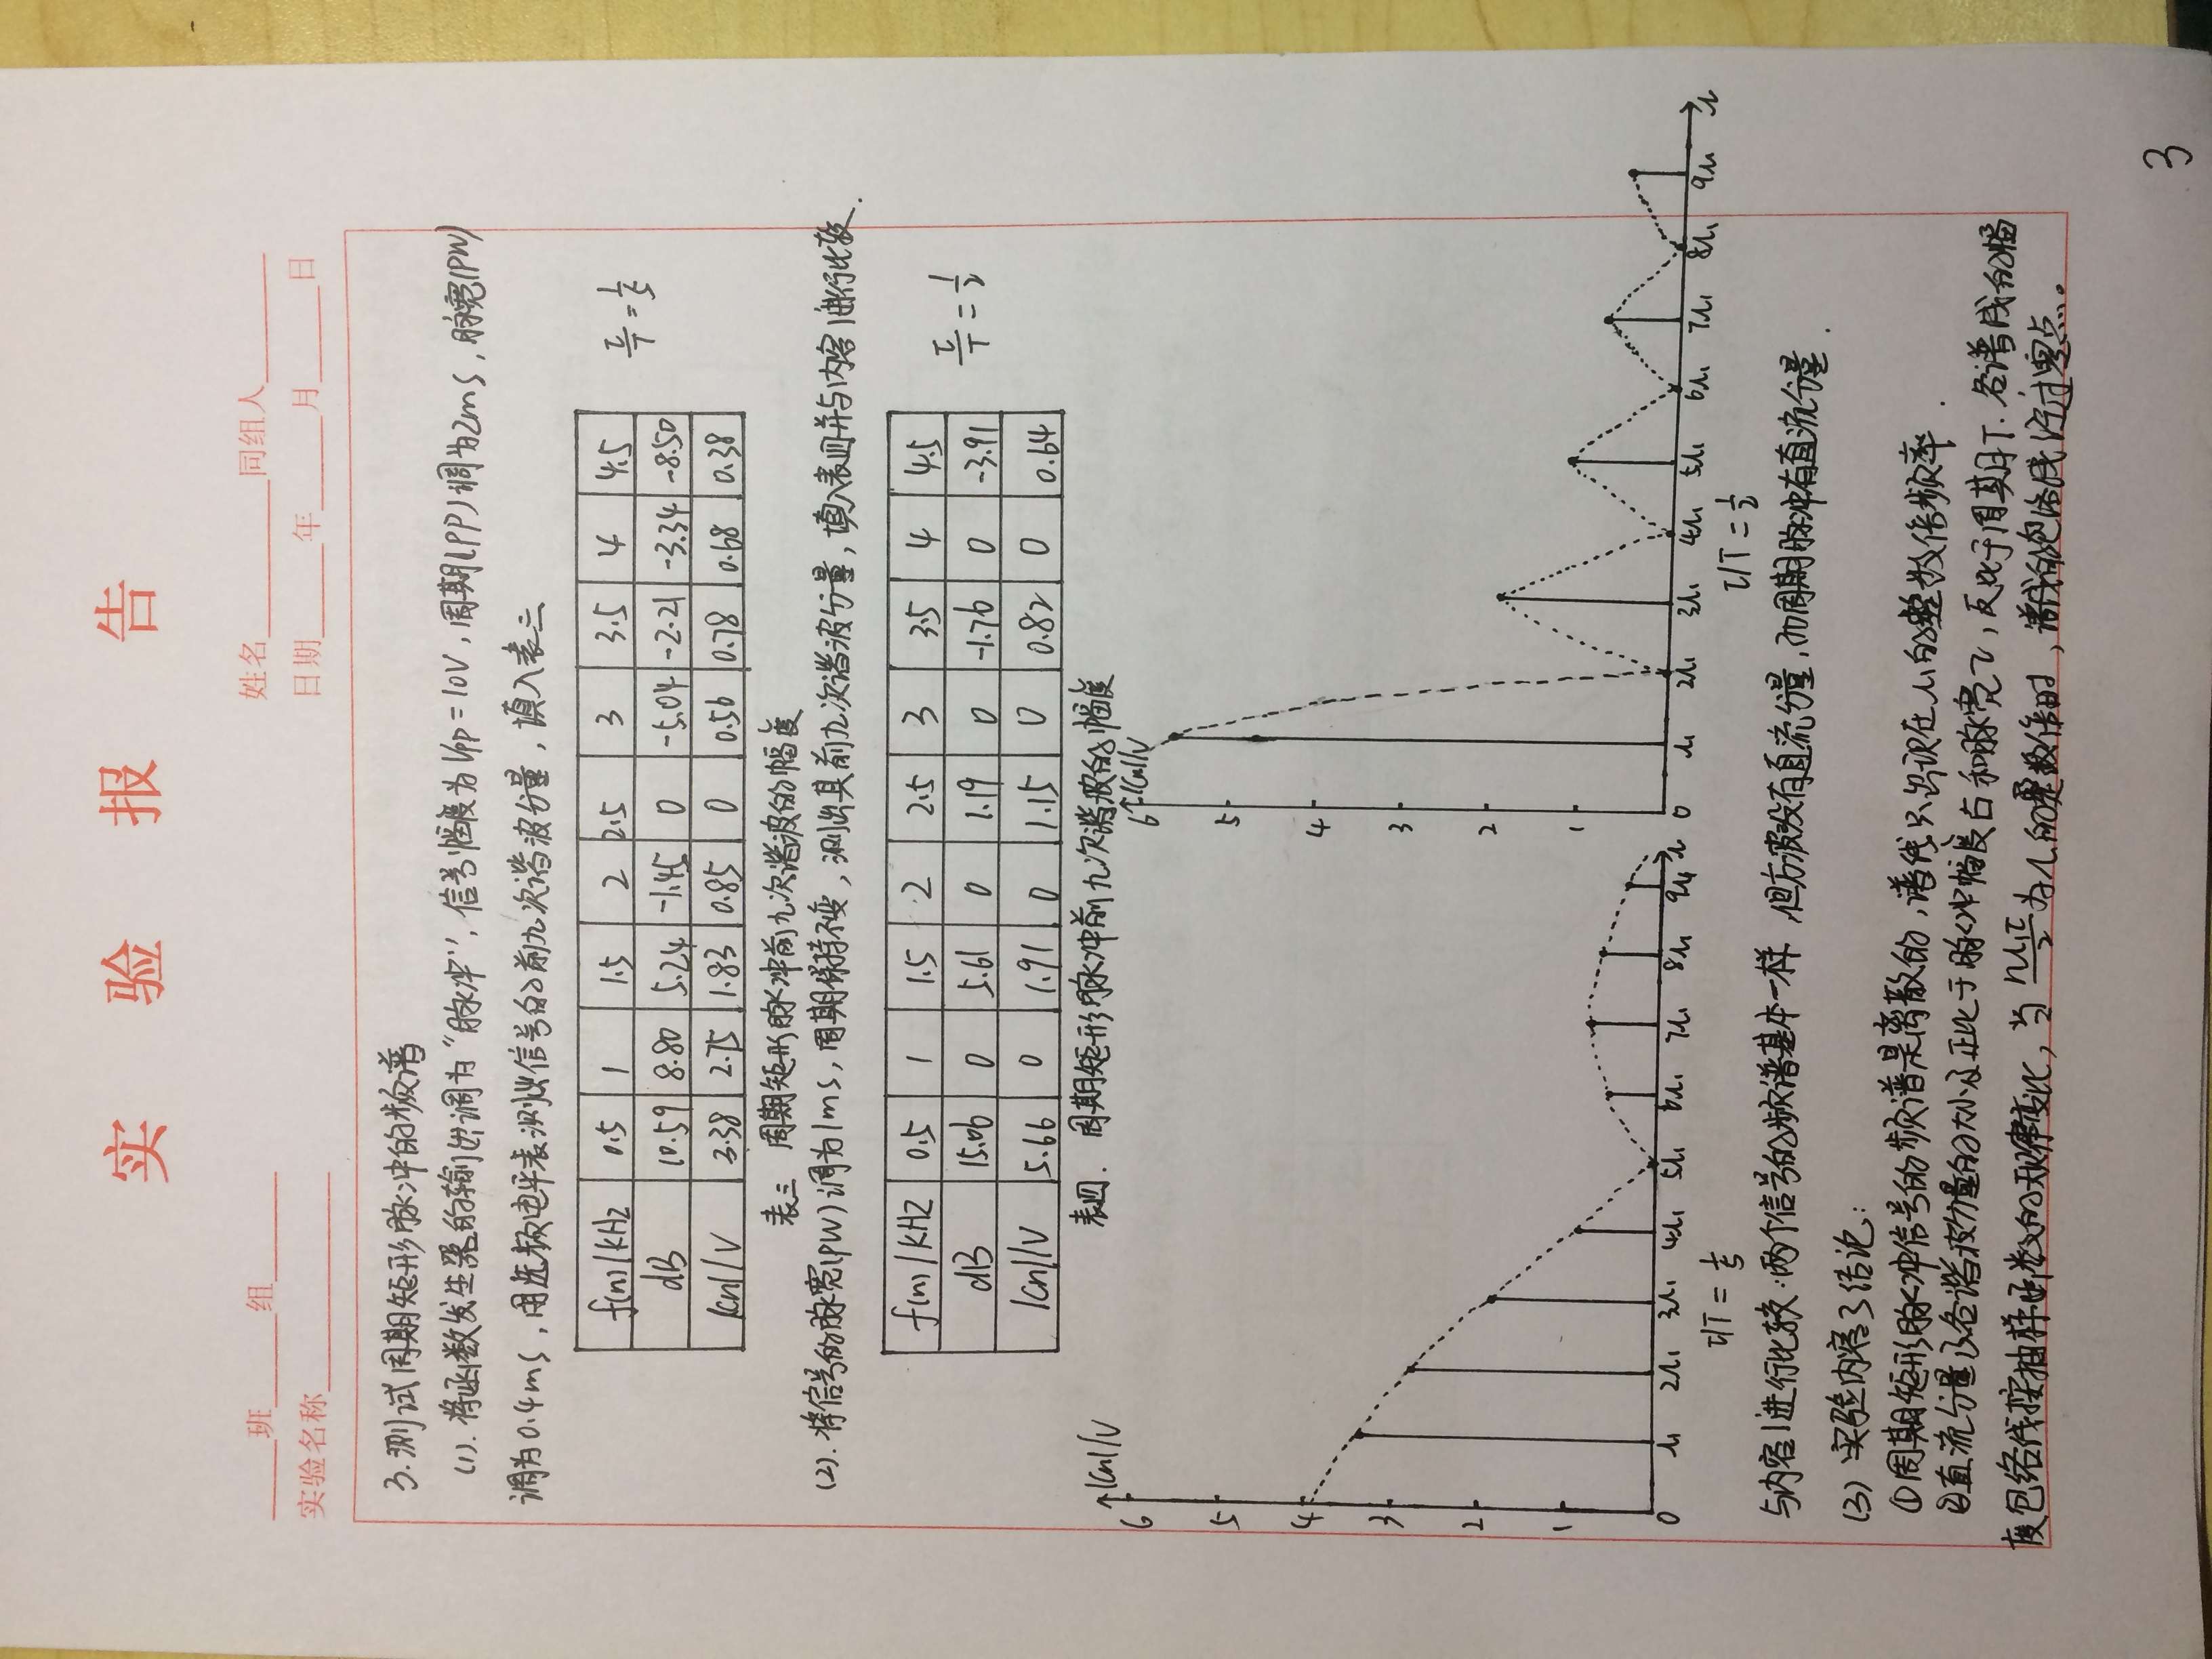 实 验 报 告
班 组 姓名 同组人
实验名称 日期 年 月 日
3.测试周期矩形脉冲的频谱
(1).将函数发生器的输出调为“脉冲”,信号幅度为Vpp=10V,周期(PP)调为2ms,脉宽(PW)
调为0.4ms,用选频电平表测出信号的前九次谐波分量,填入表三
f(n)/kHz 0.5 1 1.5 2 2.5 3 3.5 4 4.5
dB 10.59 8.80 5.24 -1.45 0 -5.04 -2.21 -3.34 -8.50
|Cn|/V 3.38 2.75 1.83 0.85 0 0.56 0.78 0.68 0.38
τ/T=1/5
表三 周期矩形脉冲前九次谐波的幅度
(2).将信号的脉宽(PW)调为1ms,周期保持不变,测出其前九次谐波分量,填入表四并与内容1进行比较.
f(n)/KHz 0.5 1 1.5 2 2.5 3 3.5 4 4.5
dB 15.06 0 5.61 0 1.19 0 -1.76 0 -3.91
|Cn|/V 5.66 0 1.91 0 1.15 0 0.82 0 0.64
τ/T=1/2
表四. 周期矩形脉冲前九次谐波的幅度
|Cn|/V
6
5
4
3
2
1
0 Ω1 2Ω1 3Ω1 4Ω1 5Ω1 6Ω1 7Ω1 8Ω1 9Ω1 Ω
τ/T=1/5
|Cn|/V
6
5
4
3
2
1
0 Ω1 2Ω1 3Ω1 4Ω1 5Ω1 6Ω1 7Ω1 8Ω1 9Ω1 Ω
τ/T=1/2
与内容1进行比较:两个信号的频谱基本一样,但方波没有直流分量,而周期脉冲有直流分量.
(3) 实验内容3结论:
①周期矩形脉冲信号的频谱是离散的,谱线只出现在Ω1的整数倍频率.
②直流分量及各谐波分量的大小正比于脉冲幅度E和脉宽τ,反比于周期T.各谱线的幅
度包络线按抽样函数的规律变化,当nΩ1τ/2为π的整数倍时,谱线的包络线经过零点。
3